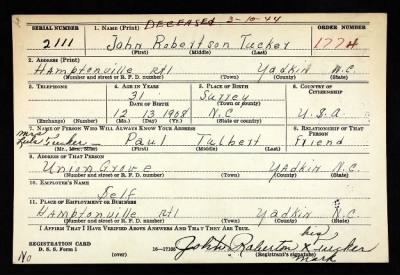 DECEASED 2-10-44
SERIAL NUMBER 1. NAME (Print) ORDER NUMBER
2111 John Robertson Tucker 1774
(First) (Middle) (Last)
2. ADDRESS (Print)
Hamptonville Rt1 Yadkin N.C.
(Number and street or R. F. D. number) (Town) (County) (State)
3. TELEPHONE 4. AGE IN YEARS 5. PLACE OF BIRTH 6. COUNTRY OF CITIZENSHIP
31 Surrey
DATE OF BIRTH (Town or county)
12 13 1908 N.C U.S.A.
(Exchange) (Number) (Mo.) (Day) (Yr.) (State or country)
7. NAME OF PERSON WHO WILL ALWAYS KNOW YOUR ADDRESS 8. RELATIONSHIP OF THAT PERSON
Mrs Tucker Paul Tulbert Friend
(Mr., Mrs., Miss) (First) (Middle) (Last)
9. ADDRESS OF THAT PERSON
Union Grove Yadkin N.C.
(Number and street or R. F. D. number) (Town) (County) (State)
10. EMPLOYER'S NAME
Self
11. PLACE OF EMPLOYMENT OR BUSINESS
Hamptonville Rt1 Yadkin N.C.
(Number and street or R. F. D. number) (Town) (County) (State)
I AFFIRM THAT I HAVE VERIFIED ABOVE ANSWERS AND THAT THEY ARE TRUE.
REGISTRATION CARD his
D. S. S. Form 1 (over) 16-17105 John Roberton X Tucker
(Registrant's signature)
No mark